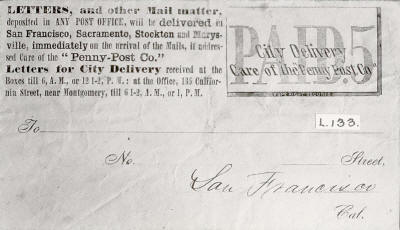 LETTERS, and other Mail matter,
deposited in ANY POST OFFICE, will be delivered in
San Francisco, Sacramento, Stockton and Marys-
ville, immediately on the arrival of the Mails, if addres-
sed Care of the "Penny-Post Co."
Letters for City Delivery received at the
Boxes till 6, A. M., or 12 1-2, P. M.: at the Office, 135 Califor-
nia Street, near Montgomery, till 6 1-2, A. M., or 1, P. M.
PAID.5
City Delivery
Care of the "Penny Post Co"
To
L.133.
No. Street,
San Francisco
Cal.